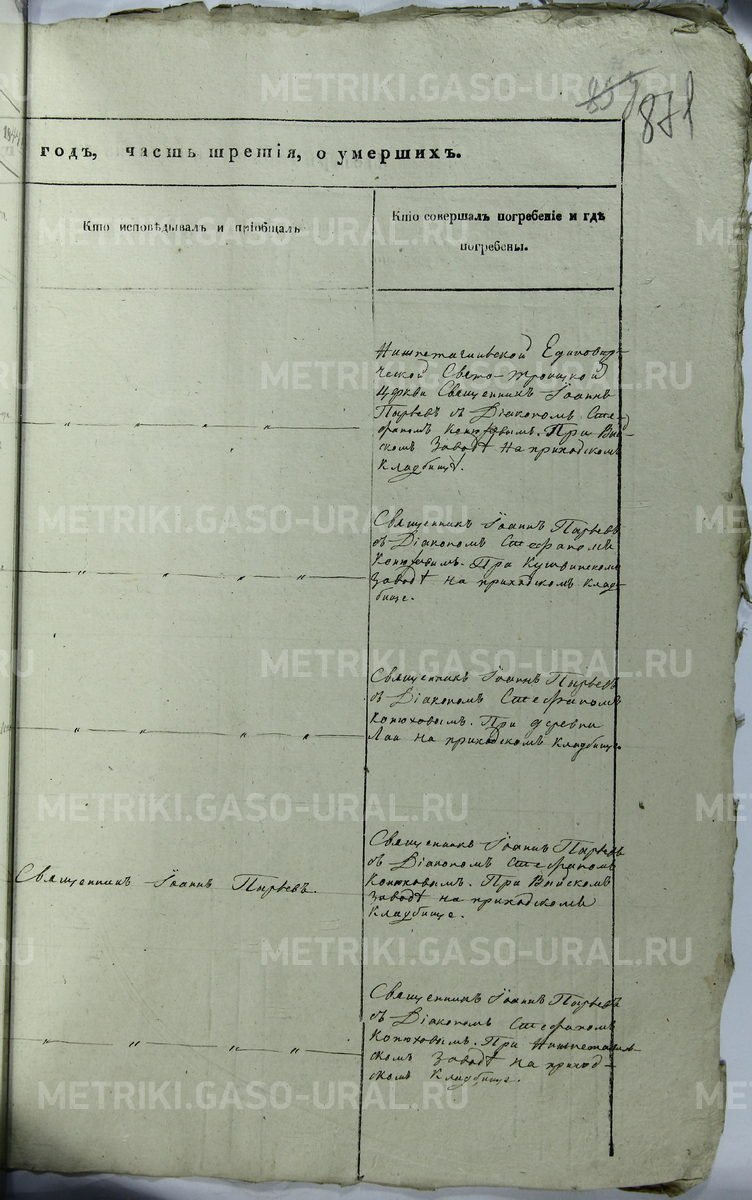 857
871
годъ, часть третія, о умершихъ.
Кто исповѣдывалъ и пріобщалъ
Кто совершалъ погребеніе и гдѣ
погребены.
Нижнетагильской Единовѣр-
ческой Свято-Троицкой
Церкви Священникъ Іоаннъ
Пырьевъ съ Діакономъ Сте-
фаномъ Конюховымъ. При Вый-
скомъ Заводѣ на приходскомъ
кладбищѣ.
Священникъ Іоаннъ Пырьевъ
съ Діакономъ Стефаномъ
Конюховымъ. При Кушвинскомъ
Заводѣ на приходскомъ клад-
бище.
Священникъ Іоаннъ Пырьевъ
съ Діакономъ Стефаномъ
Конюховымъ. При деревни
Лаи на приходскомъ кладбище.
Священникъ Іоаннъ Пырьевъ.
Священникъ Іоаннъ Пырьевъ
съ Діакономъ Стефаномъ
Конюховымъ. При Выйскомъ
Заводѣ на приходскомъ
кладбище.
Священникъ Іоаннъ Пырьевъ
съ Діакономъ Стефаномъ
Конюховымъ. При Нижнетагиль-
скомъ Заводѣ на приход-
скомъ кладбище.
METRIKI.GASO-URAL.RU